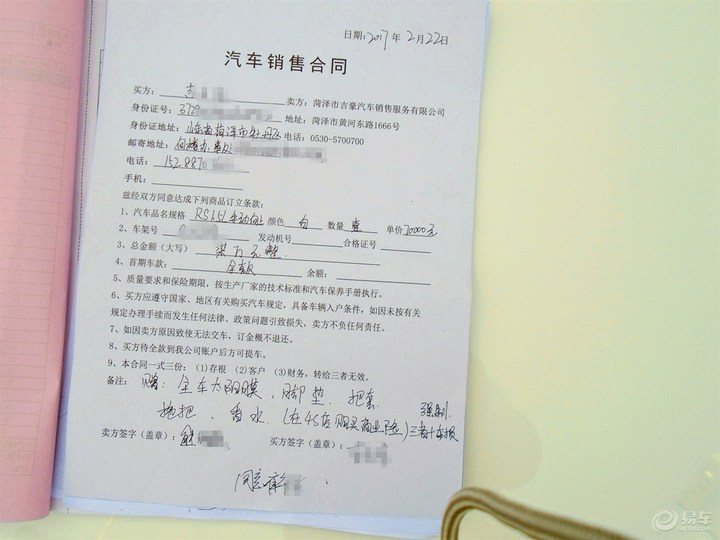 日期:2017年2月22日
汽车销售合同
买方：吉
卖方：菏泽市吉豪汽车销售服务有限公司
身份证号：3729
地址：菏泽市黄河东路1666号
身份证地址：山东省菏泽市牡丹区
电话：0530-5700700
邮寄地址：
电话：152 887
手机：
兹经双方同意达成下列商品订立条款：
1、汽车品名规格 RS1.5L 手动向上 颜色 白 数量 壹 单价 70000元
2、车架号 发动机号 合格证号
3、总金额（大写） 柒万元整.
4、首期车款： 全款 余额：
5、质量要求和保险期限，按生产厂家的技术标准和汽车保养手册执行。
6、买方应遵守国家、地区有关购买汽车规定，具备车辆入户条件，如因未按有关
规定办理手续而发生任何法律、政策问题引致损失，卖方不负任何责任。
7、如因卖方原因致使无法交车，订金概不退还。
8、买方待全款到我公司账户后方可提车。
9、本合同一式三份：(1)存根 (2)客户 (3)财务，转给三者无效。
备注： 赠：全车太阳膜、脚垫、把套
拖把、香水 (在4S店购买商业险) 强制、
三者+车损
卖方签字（盖章）：
买方签字（盖章）：
同意
易车